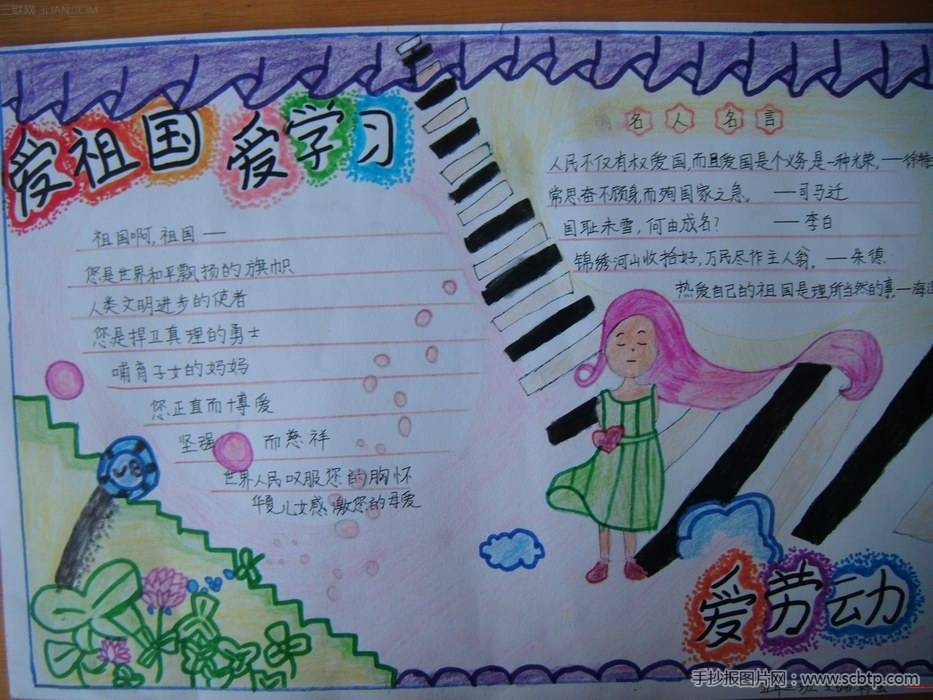 三联网 3LIAN.COM
爱祖国 爱学习
祖国啊，祖国——
您是世界和平飘扬的旗帜
人类文明进步的使者
您是捍卫真理的勇士
哺育子女的妈妈
您正直而博爱
坚强 而慈祥
世界人民叹服您的胸怀
华夏儿女感激您的母爱
名人名言
人民不仅有权爱国，而且爱国是个义务，是一种光荣。——徐特
常思奋不顾身，而殉国家之急。 ——司马迁
国耻未雪，何由成名？ ——李白
锦绣河山收拾好，万民尽作主人翁。——朱德
热爱自己的祖国是理所当然的事——海
爱劳动
手抄报图片网：www.scbtp.com